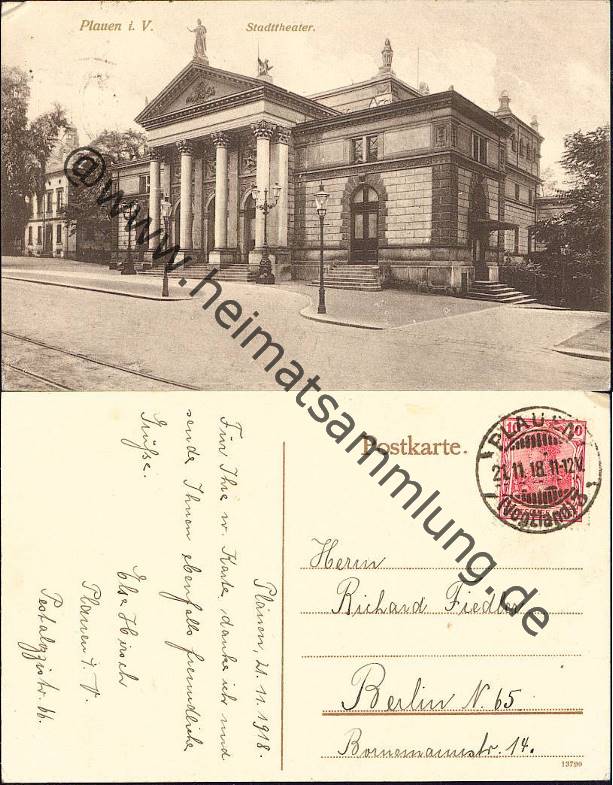 Plauen i. V.
Stadttheater.
@www.heimatsammlung.de
Postkarte.
PLAUEN
21.11.18.11-12V.
(Vogtland)
10
Plauen, 21.11.1918.
Für Ihre w. Karte danke ich und
sende Ihnen ebenfalls freundliche
Grüße.
Else Hirsch
Plauen i. V.
Pestalozzistr. 66.
Herrn
Richard Fiedler
Berlin N. 65
Bornemannstr. 14.
13799